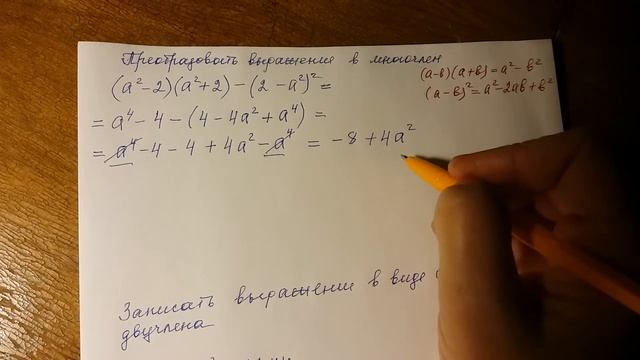 Преобразовать выражение в многочлен
(a²-2)(a²+2)-(2-a²)²=
(a-в)(a+в)=a²-в²
(a-в)²=a²-2aв+в²
=a⁴-4-(4-4a²+a⁴)=
=a⁴-4-4+4a²-a⁴=-8+4a²
Записать выражение в виде
двучлена